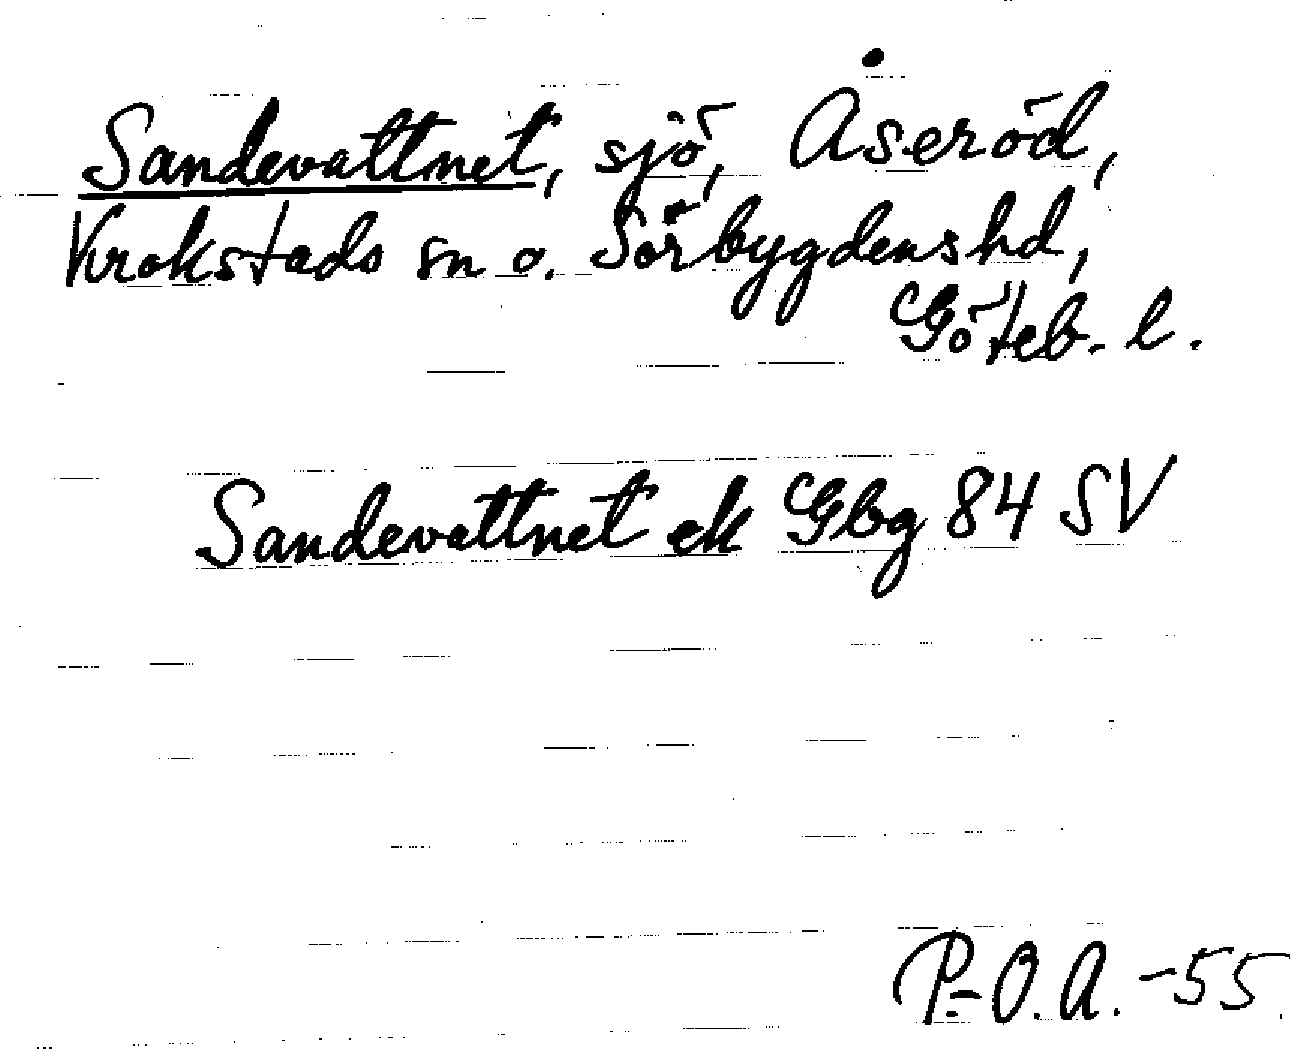 Sandevattnet, sjö, Åseröd,
Krokstads sn o. Sörbygdens hd,
Göteb. l.
Sandevattnet ek Gbg 84 SV
P.-O.A. -55.